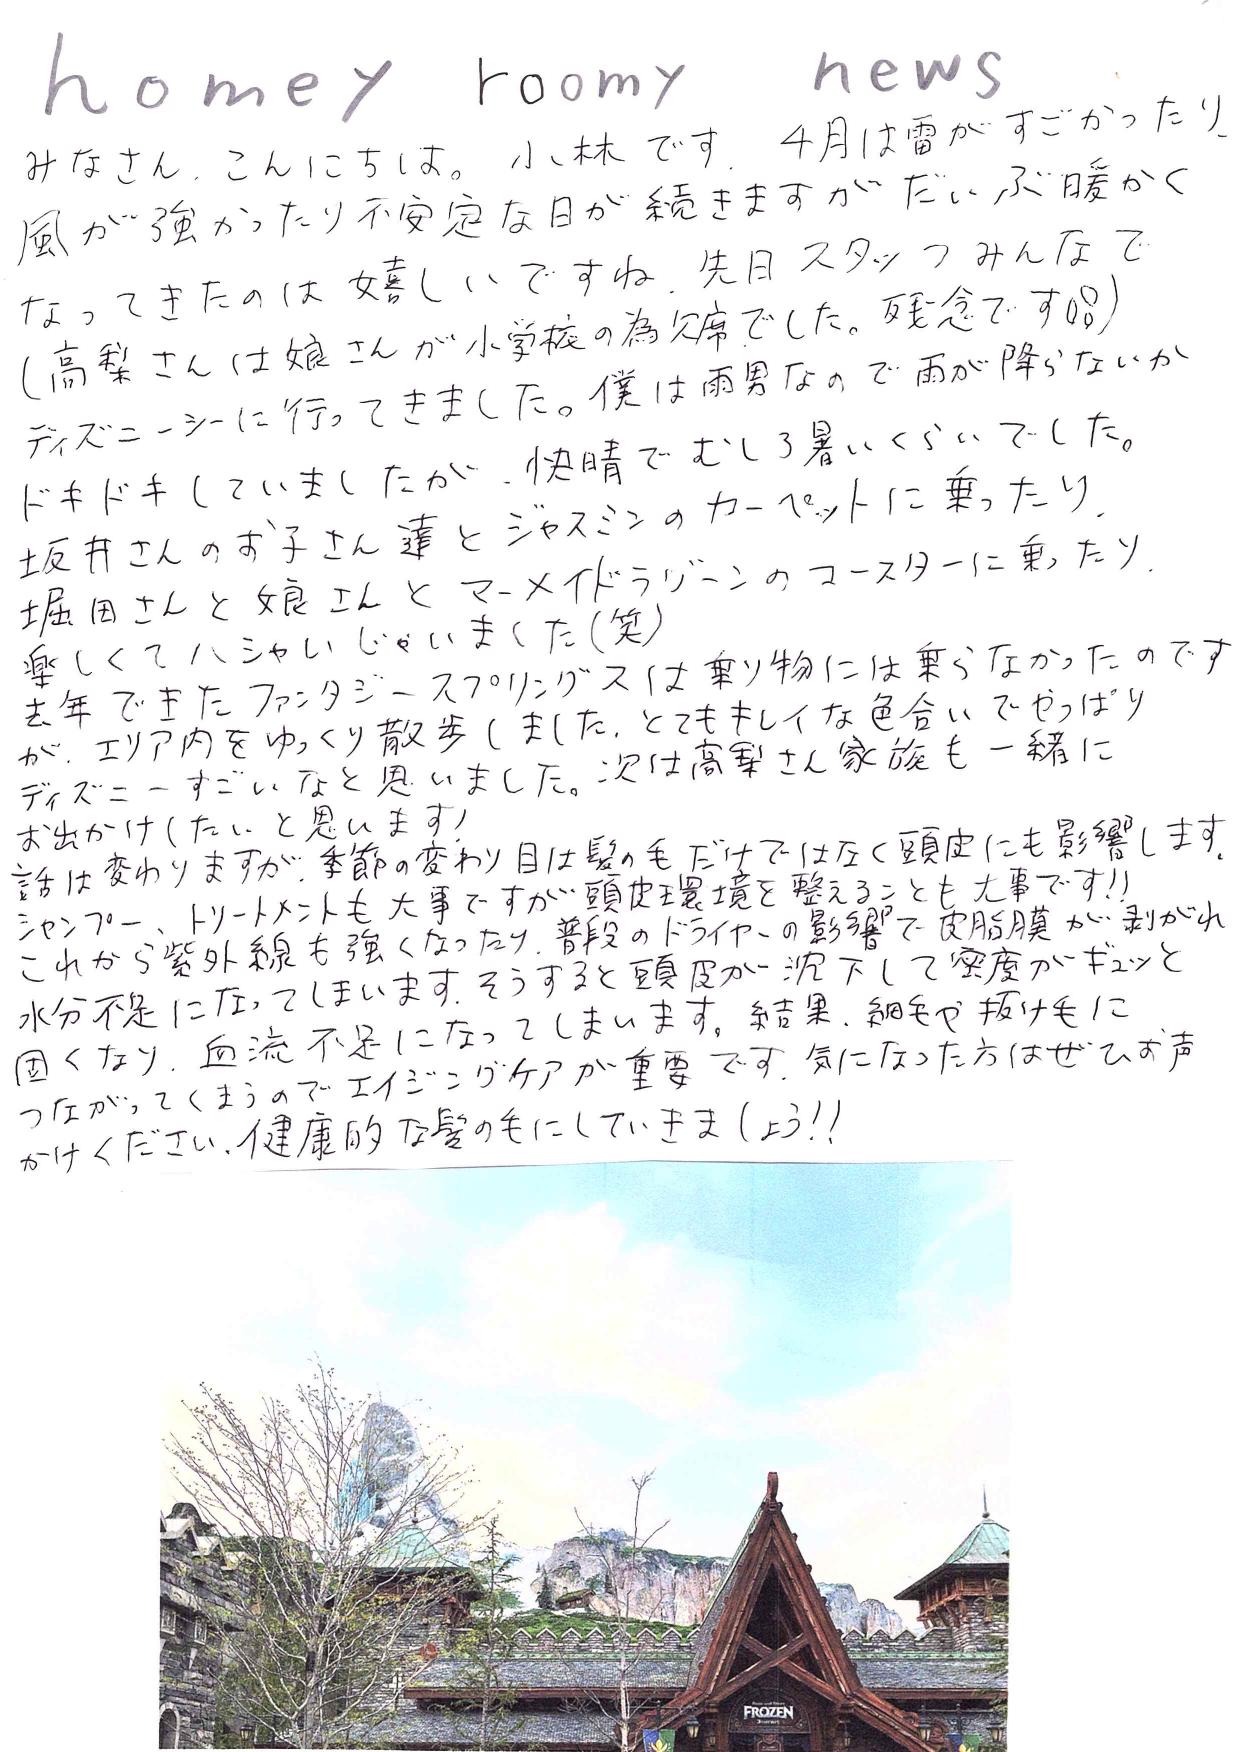 homey roomy news
みなさん、こんにちは。 小林です. 4月は雷がすごかったり、
風が強かったり不安定な日が続きますがだいぶ暖かく
なってきたのは嬉しいですね. 先日スタッフみんなで
(高梨さんは娘さんが小学校の為欠席でした。残念です)
ディズニーシーに行ってきました。僕は雨男なので雨が降らないか
ドキドキしていましたが、快晴でむしろ暑いくらいでした。
坂井さんのお子さん達とジャスミンのカーペットに乗ったり、
堀田さんと娘さんとマーメイドラグーンのコースターに乗ったり、
楽しくてハシャいじゃいました(笑)
去年できたファンタジースプリングスは乗り物には乗らなかったのです
が、エリア内をゆっくり散歩しました、とてもキレイな色合いでやっぱり
ディズニーすごいなと思いました。次は高梨さん家族も一緒に
お出かけしたいと思います!
話は変わりますが、季節の変わり目は髪の毛だけではなく頭皮にも影響します。
シャンプー、トリートメントも大事ですが頭皮環境を整えることも大事です!!
これから紫外線も強くなったり、普段のドライヤーの影響で皮脂膜が剥がれ
水分不足になってしまいます. そうすると頭皮が沈下して密度がギュッと
固くなり、血流不足になってしまいます。結果、細毛や抜け毛に
つながってくまうのでエイジングケアが重要です. 気になった方はぜひお声
かけください、健康的な髪の毛にしていきましょう!!
FROZEN